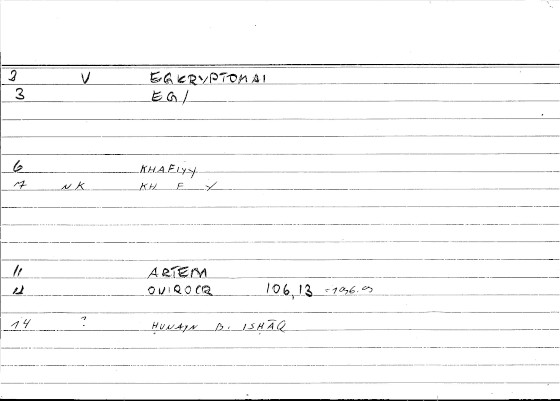 2 V EGKRYPTOMAI
3 EG/
6 KHAFIYY
7 NK KH F Y
11 ARTEM
12 ONIROCR 106,13
14 ? ḤUNAIN B. ISḤĀQ